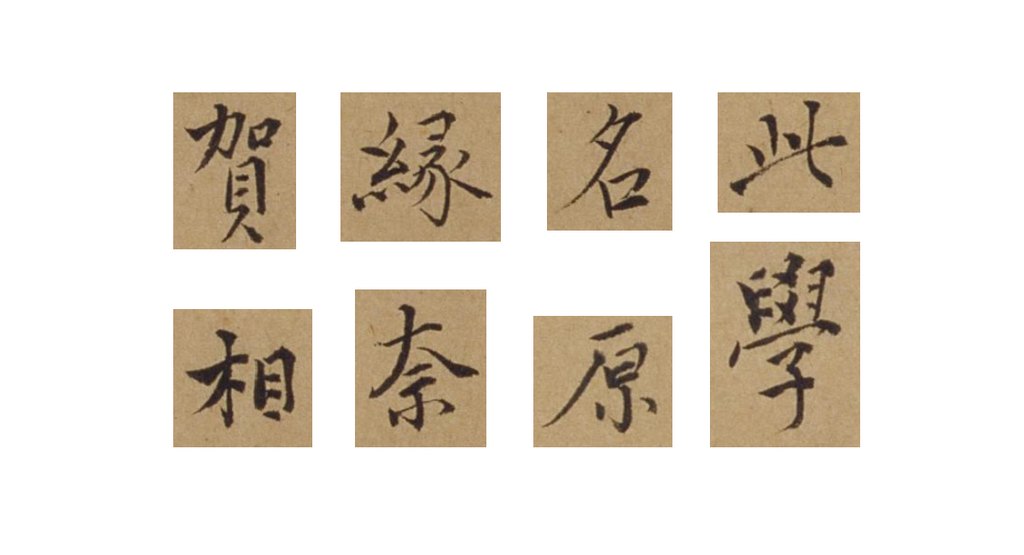 賀 緣 名 此
相 奈 原 學